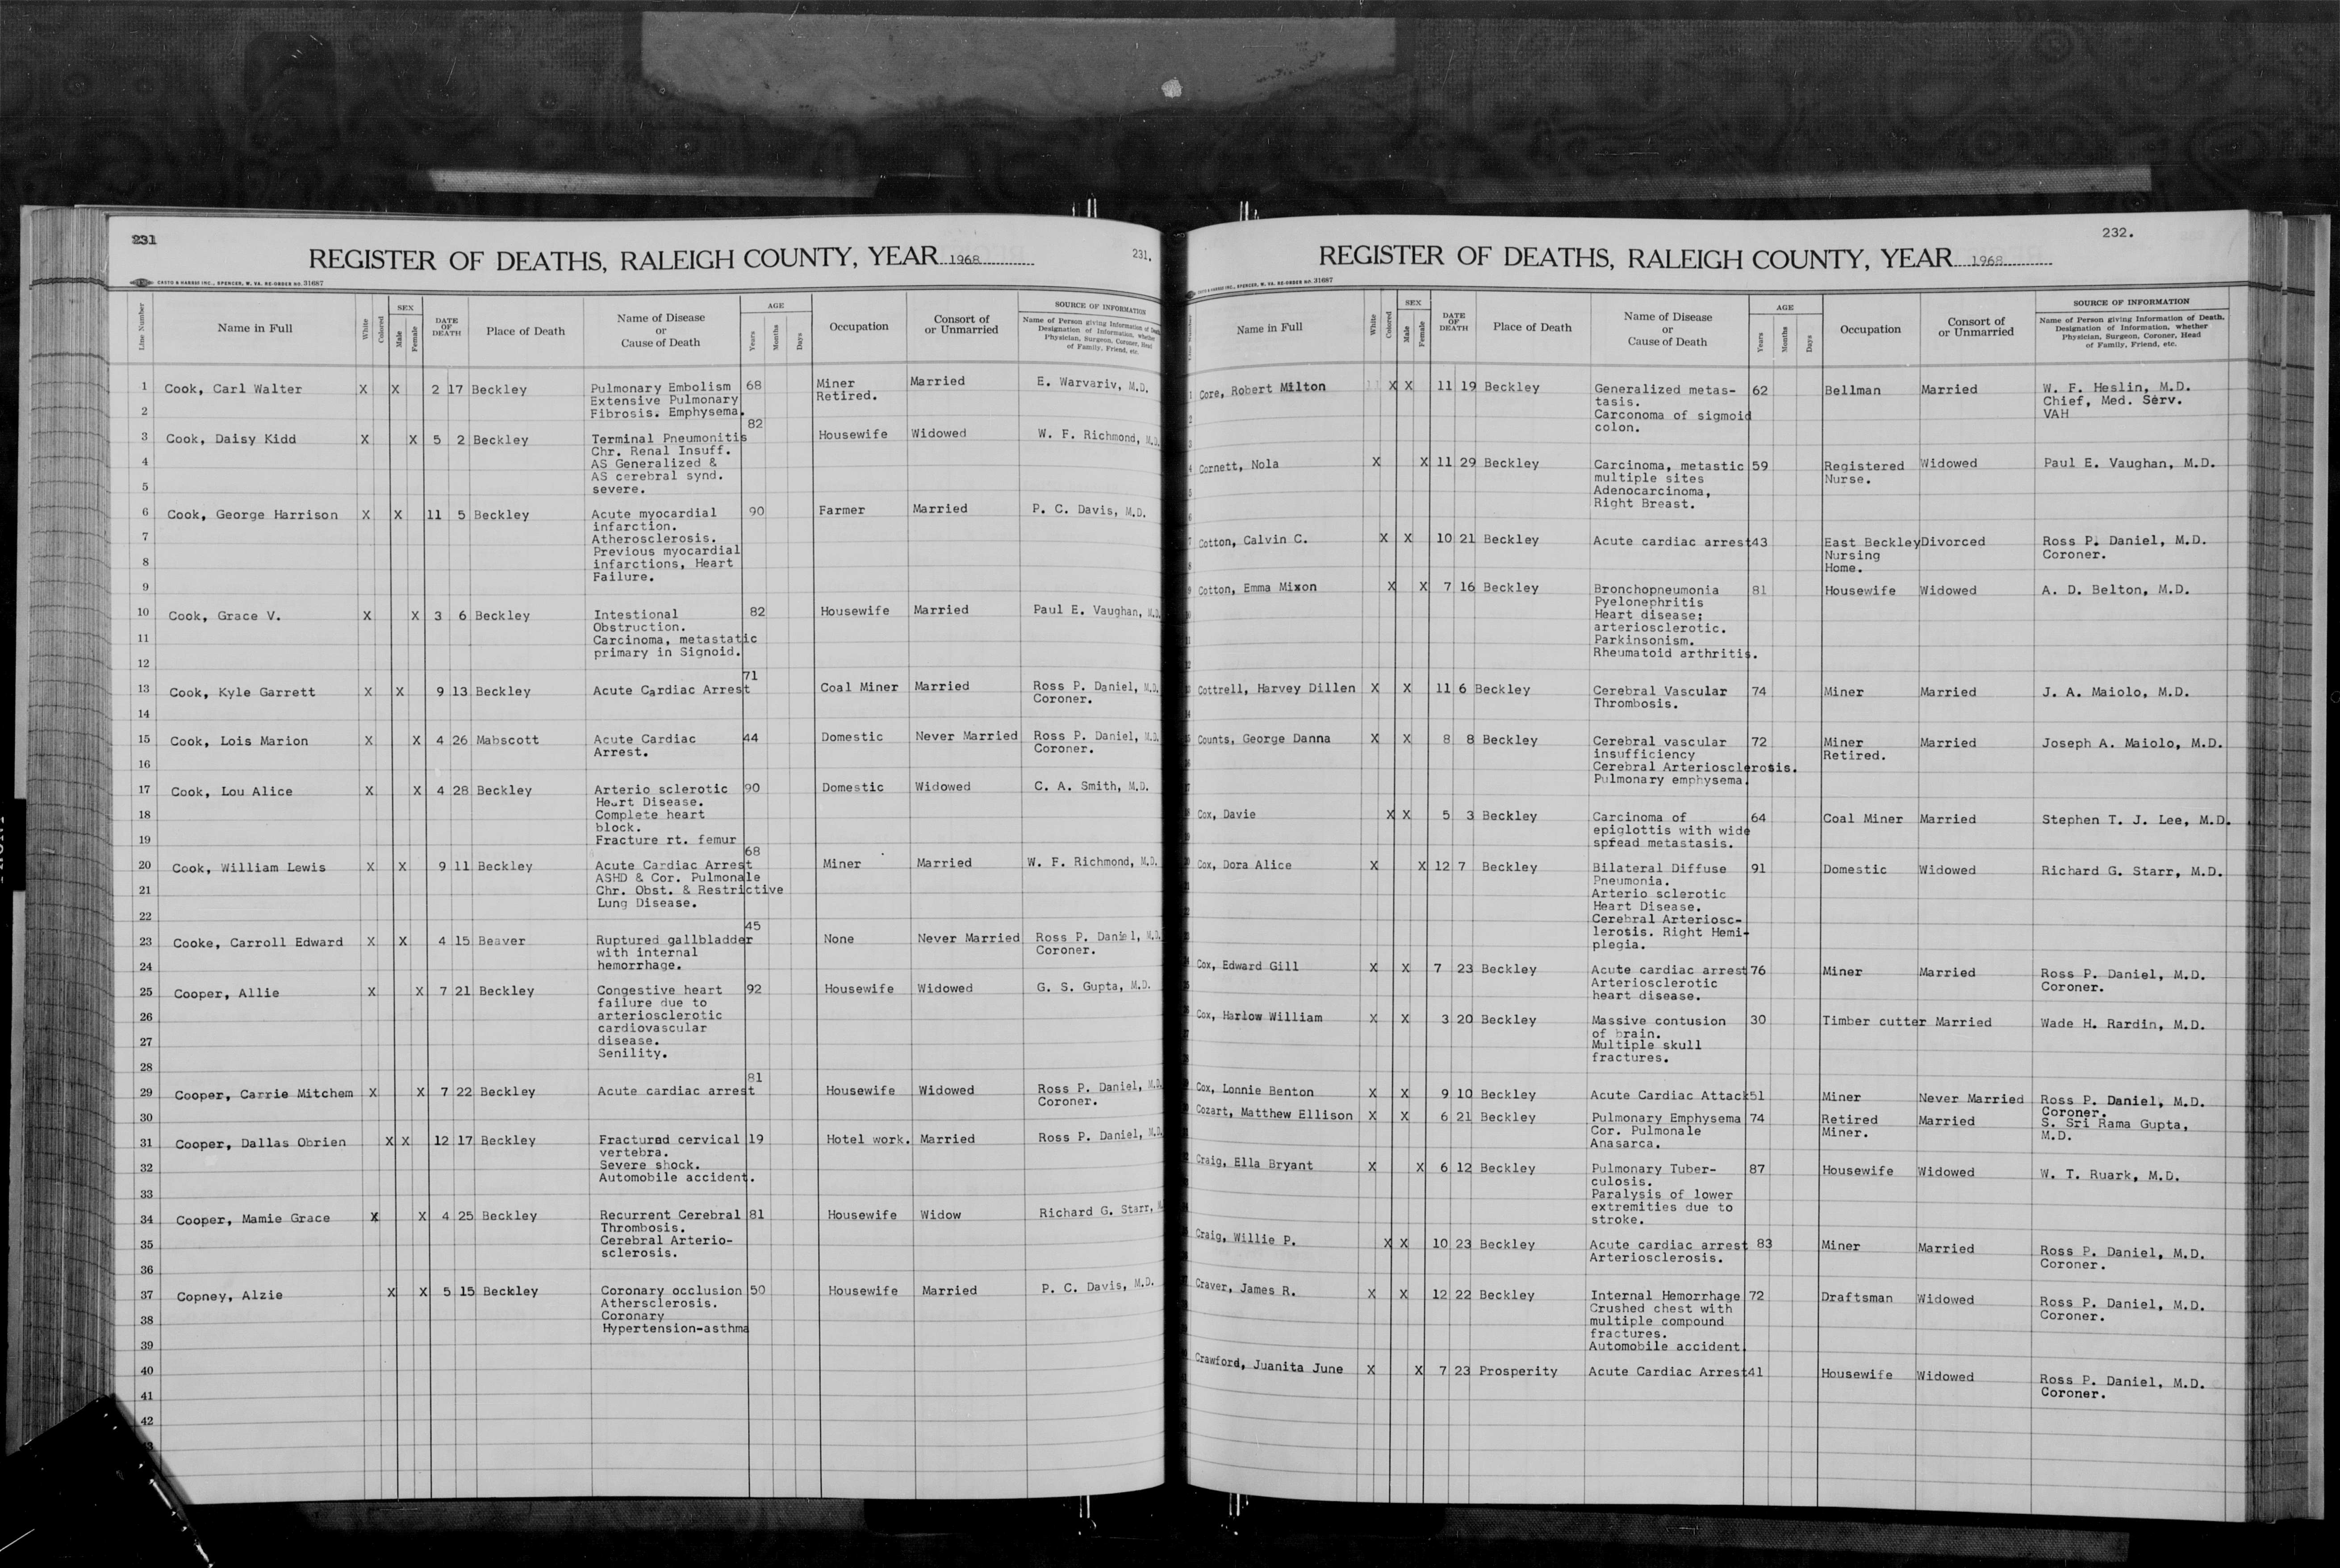 231
REGISTER OF DEATHS, RALEIGH COUNTY, YEAR 1968
231.
CASTO & HARRIS INC., SPENCER, W. VA. RE-ORDER NO. 31687
Line Number
Name in Full
White
Colored
SEX
Male
Female
DATE OF DEATH
Place of Death
Name of Disease or Cause of Death
AGE
Years
Months
Days
Occupation
Consort of or Unmarried
SOURCE OF INFORMATION
Name of Person giving Information of Death.
Designation of Information, whether
Physician, Surgeon, Coroner, Head
of Family, Friend, etc.
1 Cook, Carl Walter X X 2 17 Beckley Pulmonary Embolism 68 Miner Married E. Warvariv, M.D.
Extensive Pulmonary Retired.
2 Fibrosis. Emphysema.
3 Cook, Daisy Kidd X X 5 2 Beckley Terminal Pneumonitis 82 Housewife Widowed W. F. Richmond, M.D.
Chr. Renal Insuff.
4 AS Generalized &
AS cerebral synd.
5 severe.
6 Cook, George Harrison X X 11 5 Beckley Acute myocardial 90 Farmer Married P. C. Davis, M.D.
infarction.
7 Atherosclerosis.
Previous myocardial
8 infarctions, Heart
Failure.
9
10 Cook, Grace V. X X 3 6 Beckley Intestional 82 Housewife Married Paul E. Vaughan, M.D.
Obstruction.
11 Carcinoma, metastatic
primary in Signoid.
12
13 Cook, Kyle Garrett X X 9 13 Beckley Acute Cardiac Arrest 71 Coal Miner Married Ross P. Daniel, M.D.
Coroner.
14
15 Cook, Lois Marion X X 4 26 Mabscott Acute Cardiac 44 Domestic Never Married Ross P. Daniel, M.D.
Arrest. Coroner.
16
17 Cook, Lou Alice X X 4 28 Beckley Arterio sclerotic 90 Domestic Widowed C. A. Smith, M.D.
Heart Disease.
18 Complete heart
block.
19 Fracture rt. femur
20 Cook, William Lewis X X 9 11 Beckley Acute Cardiac Arrest 68 Miner Married W. F. Richmond, M.D.
ASHD & Cor. Pulmonale
21 Chr. Obst. & Restrictive
Lung Disease.
22
23 Cooke, Carroll Edward X X 4 15 Beaver Ruptured gallbladder 45 None Never Married Ross P. Daniel, M.D.
with internal Coroner.
24 hemorrhage.
25 Cooper, Allie X X 7 21 Beckley Congestive heart 92 Housewife Widowed G. S. Gupta, M.D.
failure due to
26 arteriosclerotic
cardiovascular
27 disease.
Senility.
28
29 Cooper, Carrie Mitchem X X 7 22 Beckley Acute cardiac arrest 81 Housewife Widowed Ross P. Daniel, M.D.
Coroner.
30
31 Cooper, Dallas Obrien X X 12 17 Beckley Fractured cervical 19 Hotel work. Married Ross P. Daniel, M.D.
vertebra.
32 Severe shock.
Automobile accident.
33
34 Cooper, Mamie Grace X X 4 25 Beckley Recurrent Cerebral 81 Housewife Widow Richard G. Starr,
Thrombosis.
35 Cerebral Arterio-
sclerosis.
36
37 Copney, Alzie X X 5 15 Beckley Coronary occlusion 50 Housewife Married P. C. Davis, M.D.
Athersclerosis.
38 Coronary
Hypertension-asthma
39
40
41
42
232.
REGISTER OF DEATHS, RALEIGH COUNTY, YEAR 1968
CASTO & HARRIS INC., SPENCER, W. VA. RE-ORDER NO. 31687
Name in Full
White
Colored
SEX
Male
Female
DATE OF DEATH
Place of Death
Name of Disease or Cause of Death
AGE
Years
Months
Days
Occupation
Consort of or Unmarried
SOURCE OF INFORMATION
Name of Person giving Information of Death.
Designation of Information, whether
Physician, Surgeon, Coroner, Head
of Family, Friend, etc.
Core, Robert Milton X X 11 19 Beckley Generalized metas- 62 Bellman Married W. F. Heslin, M.D.
tasis. Chief, Med. Serv.
Carconoma of sigmoid VAH
colon.
Cornett, Nola X X 11 29 Beckley Carcinoma, metastic 59 Registered Widowed Paul E. Vaughan, M.D.
multiple sites Nurse.
Adenocarcinoma,
Right Breast.
Cotton, Calvin C. X X 10 21 Beckley Acute cardiac arrest 43 East Beckley Divorced Ross P. Daniel, M.D.
Nursing Coroner.
Home.
Cotton, Emma Mixon X X 7 16 Beckley Bronchopneumonia 81 Housewife Widowed A. D. Belton, M.D.
Pyelonephritis
Heart disease;
arteriosclerotic.
Parkinsonism.
Rheumatoid arthritis.
Cottrell, Harvey Dillen X X 11 6 Beckley Cerebral Vascular 74 Miner Married J. A. Maiolo, M.D.
Thrombosis.
Counts, George Danna X X 8 8 Beckley Cerebral vascular 72 Miner Married Joseph A. Maiolo, M.D.
insufficiency Retired.
Cerebral Arteriosclerosis.
Pulmonary emphysema.
Cox, Davie X X 5 3 Beckley Carcinoma of 64 Coal Miner Married Stephen T. J. Lee, M.D.
epiglottis with wide
spread metastasis.
Cox, Dora Alice X X 12 7 Beckley Bilateral Diffuse 91 Domestic Widowed Richard G. Starr, M.D.
Pneumonia.
Arterio sclerotic
Heart Disease.
Cerebral Arteriosc-
lerosis. Right Hemi-
plegia.
Cox, Edward Gill X X 7 23 Beckley Acute cardiac arrest 76 Miner Married Ross P. Daniel, M.D.
Arteriosclerotic Coroner.
heart disease.
Cox, Harlow William X X 3 20 Beckley Massive contusion 30 Timber cutter Married Wade H. Rardin, M.D.
of brain.
Multiple skull
fractures.
Cox, Lonnie Benton X X 9 10 Beckley Acute Cardiac Attack 51 Miner Never Married Ross P. Daniel, M.D.
Coroner.
Cozart, Matthew Ellison X X 6 21 Beckley Pulmonary Emphysema 74 Retired Married S. Sri Rama Gupta,
Cor. Pulmonale Miner. M.D.
Anasarca.
Craig, Ella Bryant X X 6 12 Beckley Pulmonary Tuber- 87 Housewife Widowed W. T. Ruark, M.D.
culosis.
Paralysis of lower
extremities due to
stroke.
Craig, Willie P. X X 10 23 Beckley Acute cardiac arrest 83 Miner Married Ross P. Daniel, M.D.
Arteriosclerosis. Coroner.
Craver, James R. X X 12 22 Beckley Internal Hemorrhage 72 Draftsman Widowed Ross P. Daniel, M.D.
Crushed chest with Coroner.
multiple compound
fractures.
Automobile accident.
Crawford, Juanita June X X 7 23 Prosperity Acute Cardiac Arrest 41 Housewife Widowed Ross P. Daniel, M.D.
Coroner.